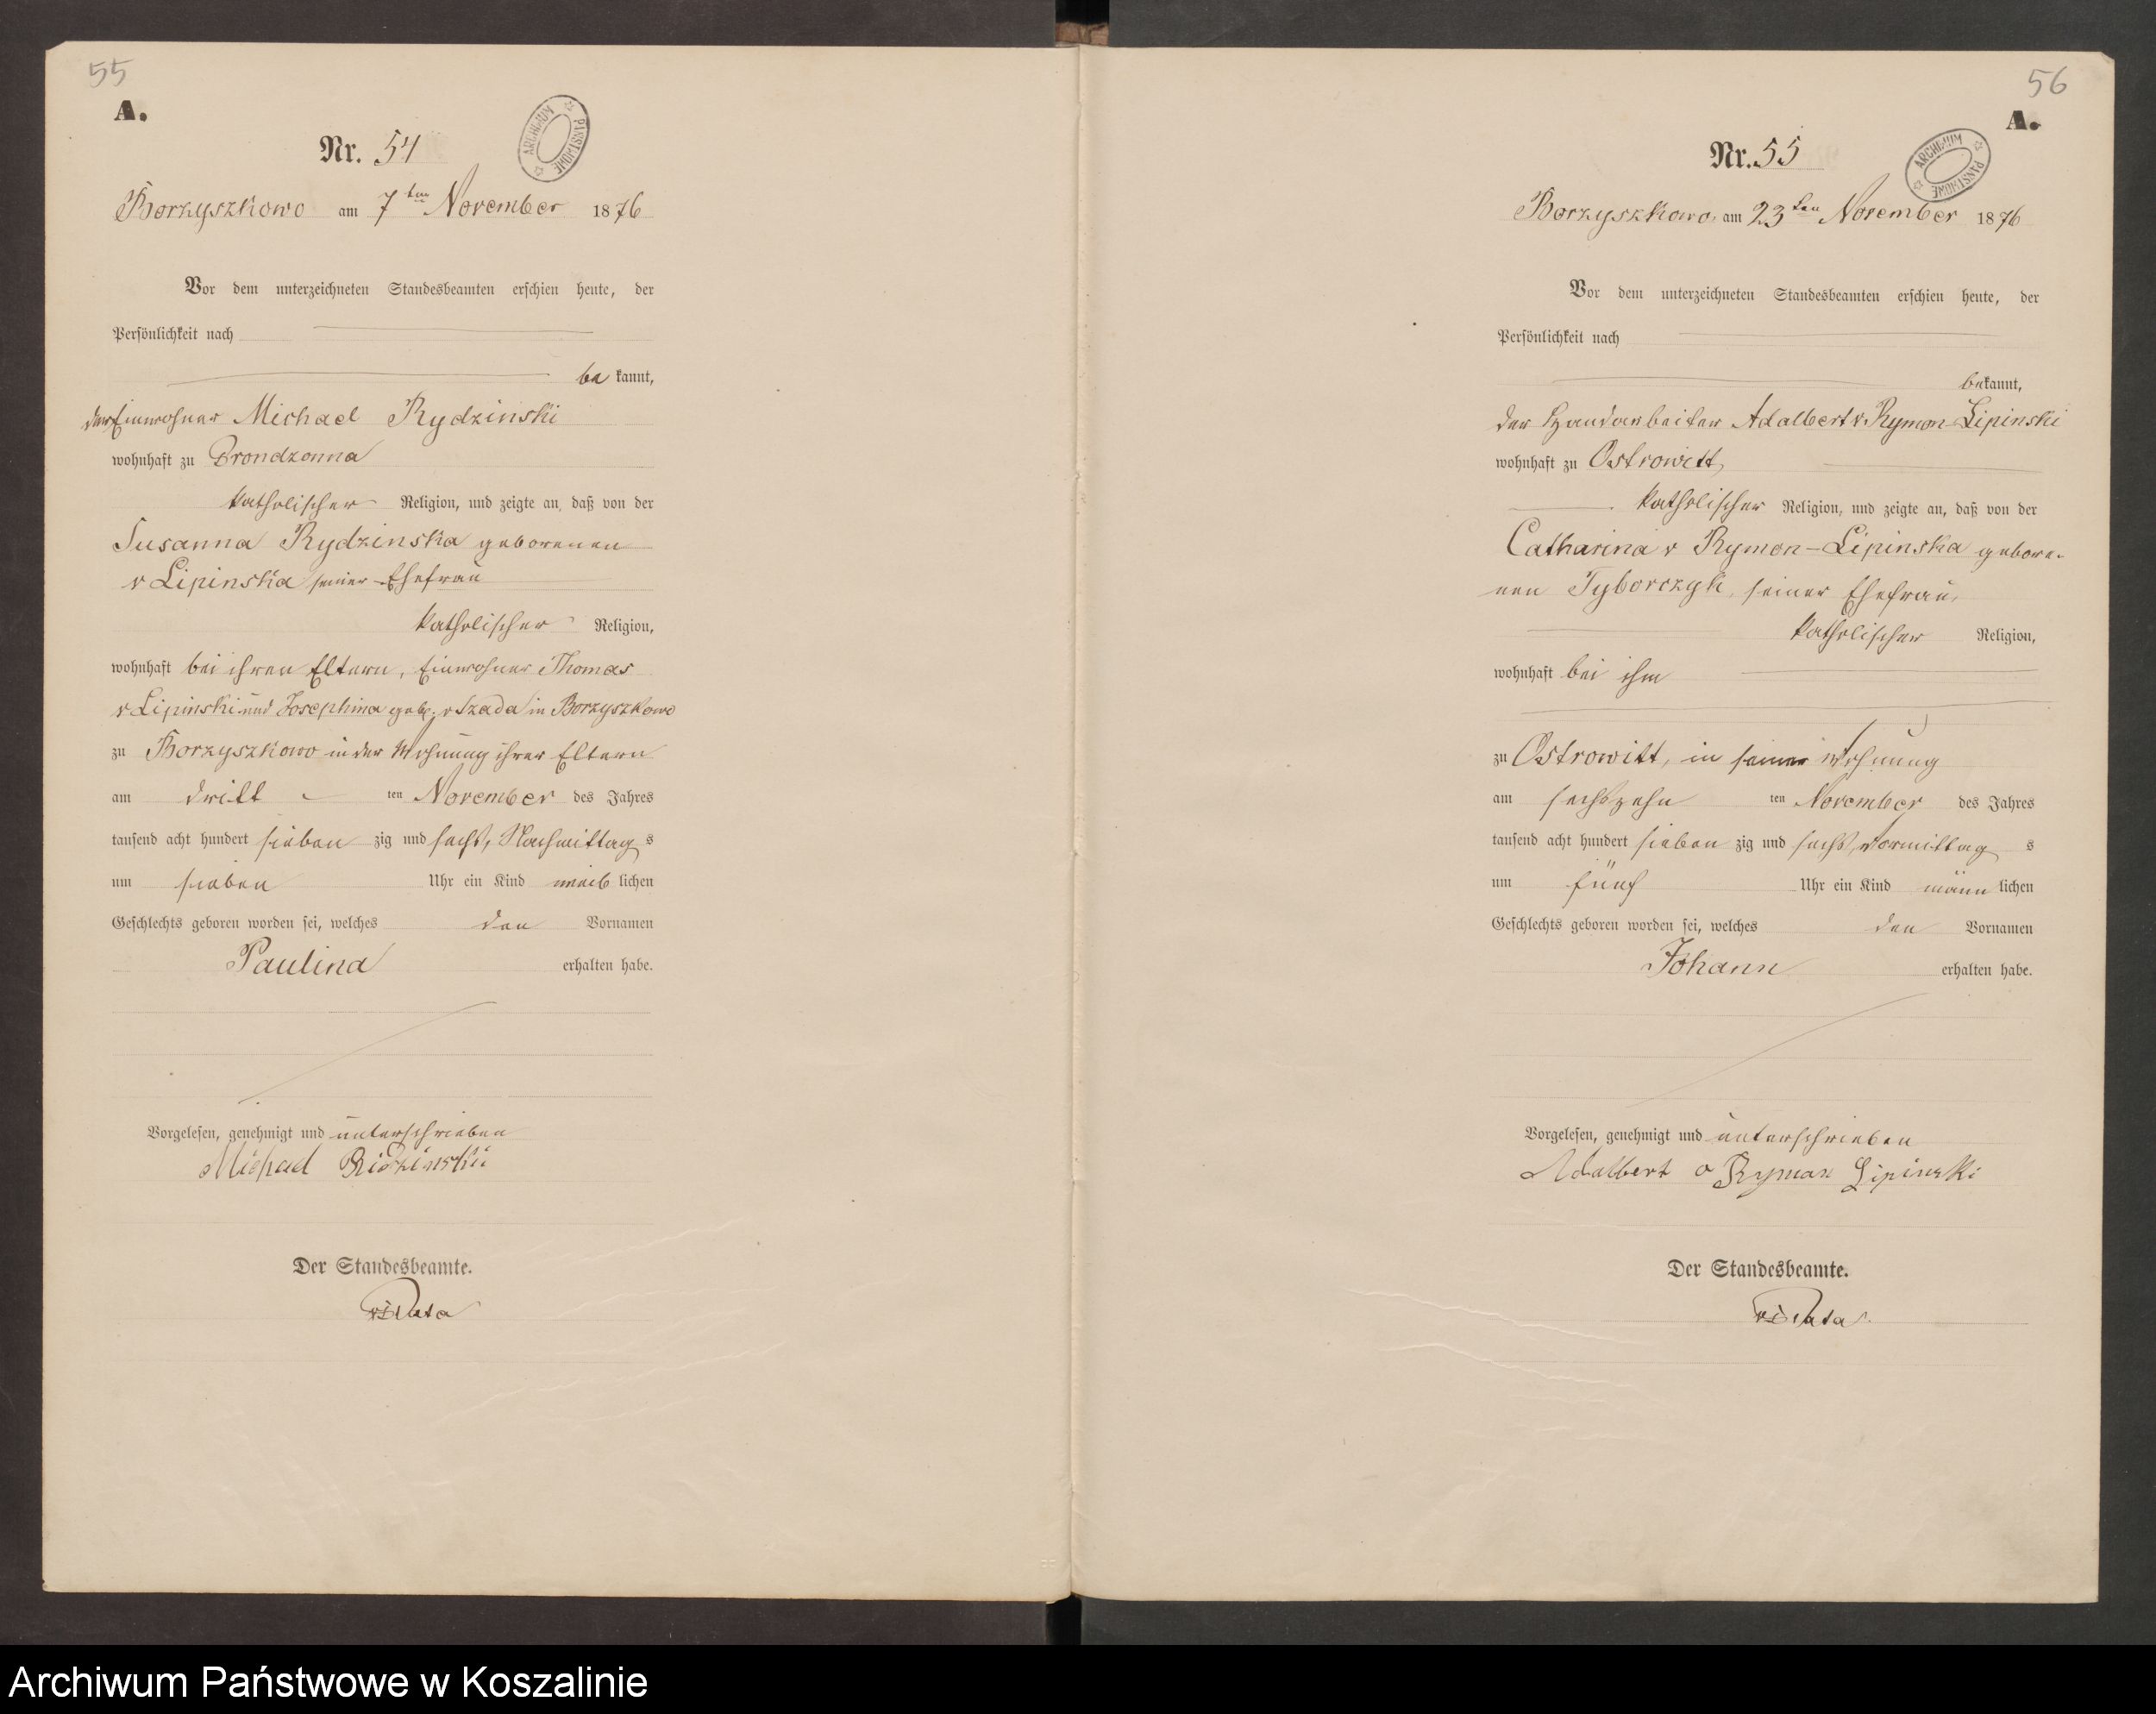 55
A.
Nr. 54
ARCHIWUM PAŃSTWOWE
Borzyszkowo am 7ten November 1876
Vor dem unterzeichneten Standesbeamten erschien heute, der
Persönlichkeit nach
be kannt,
der Einwohner Michael Rydzinski
wohnhaft zu Brondzonna
katholischer Religion, und zeigte an, daß von der
Susanna Rydzinska geborenen
v Lipinska seiner Ehefrau
katholischer Religion,
wohnhaft bei ihren Eltern, Einwohner Thomas
v Lipinski und Josephina geb. v Szada in Borzyszkowo
zu Borzyszkowo in der Wohnung ihrer Eltern
am dritt ten November des Jahres
tausend acht hundert sieben zig und sechs, Nachmittag s
um sieben Uhr ein Kind weib lichen
Geschlechts geboren worden sei, welches den Vornamen
Paulina erhalten habe.
Vorgelesen, genehmigt und unterschrieben
Michael
Der Standesbeamte.
56
A.
Nr. 55
ARCHIWUM PAŃSTWOWE
Borzyszkowo, am 23ten November 1876
Vor dem unterzeichneten Standesbeamten erschien heute, der
Persönlichkeit nach
be kannt,
der Handarbeiter Adalbert v. Rymon-Lipinski
wohnhaft zu Ostrowitt,
katholischer Religion, und zeigte an, daß von der
Catharina v Rymon-Lipinska gebore-
nen Tyborczyk, seiner Ehefrau,
katholischer Religion,
wohnhaft bei ihm
zu Ostrowitt, in seiner Wohnung
am sechszehn ten November des Jahres
tausend acht hundert sieben zig und sechs, Vormittag s
um fünf Uhr ein Kind männ lichen
Geschlechts geboren worden sei, welches den Vornamen
Johann erhalten habe.
Vorgelesen, genehmigt und unterschrieben
Adalbert v Rymon Lipinski
Der Standesbeamte.
Archiwum Państwowe w Koszalinie